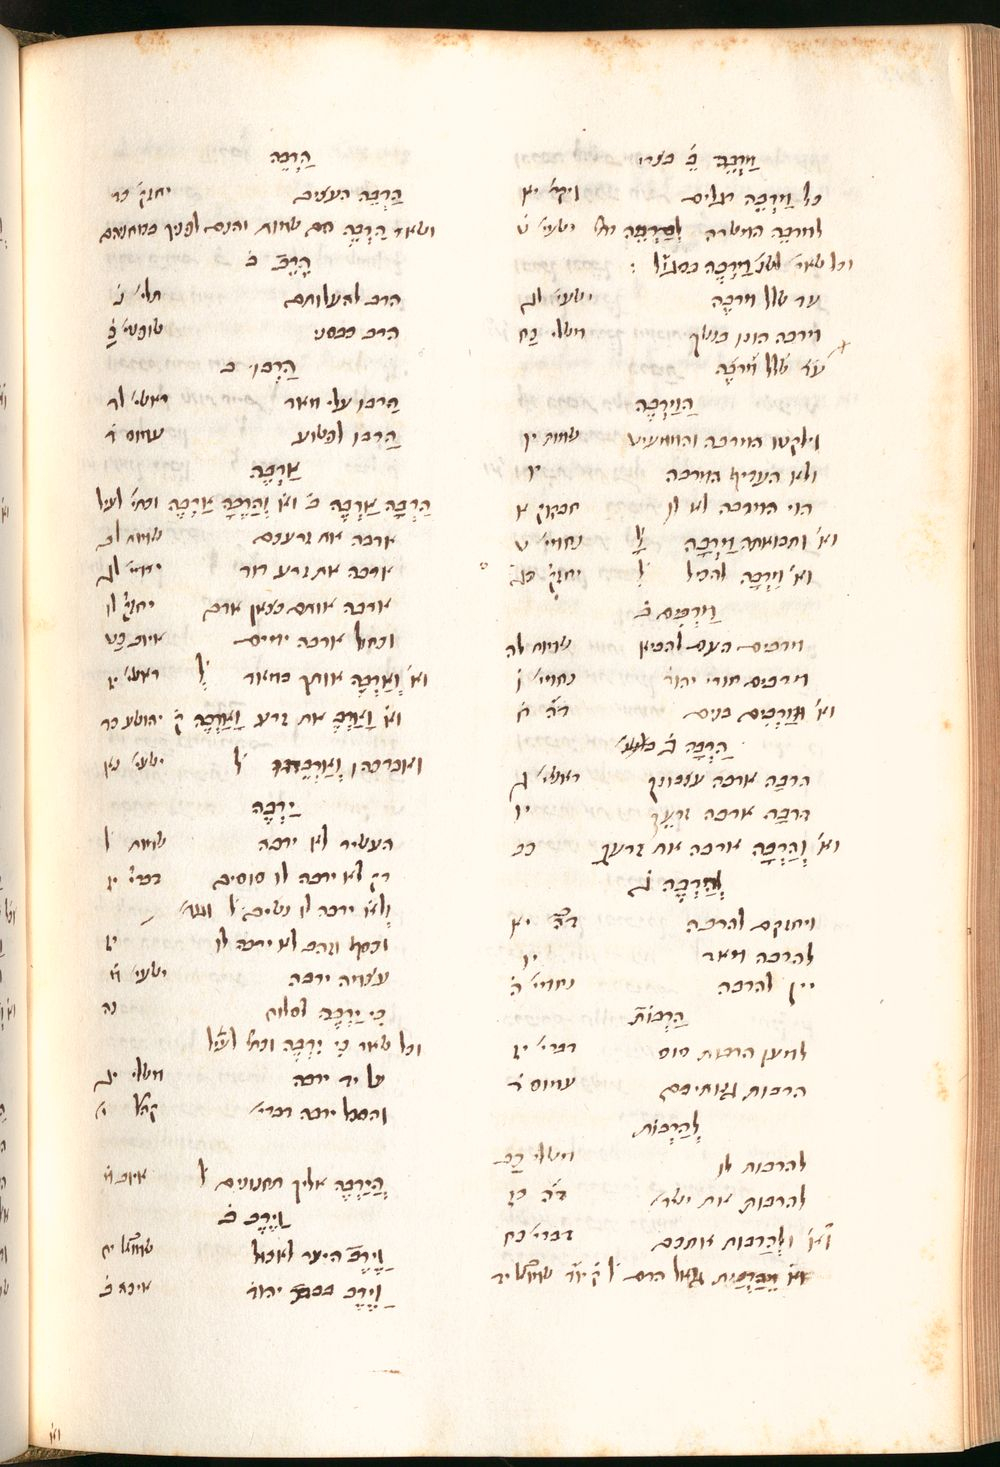 מַרְבֵּה בֿ בצרי
כל מַרְבֵּה רגלים ויקר׳ יא
למרבה המשרה ישעי׳ ט
וכל שאר לשנ׳ מַרְבֶּה בסגול :
עד שלל מרבה ישעי׳ לג
מרבה הונו בנשך משלי כח
עַד שלל מַרְבֶּה
הַמַּרְבֶּה
וילקטו המרבה והממעיט שמות יו
ולא העדיף המרבה יו
הוי המרבה לא לו חבקוק א
וא׳ ותבואתה מַרְבָּה ל׳ נחמי׳ ט
וא׳ מִרְבָּה להכיל ל׳ יחזק׳ כג
מַרְבִּים בֿ
מרבים העם להביא שמות לה
מרבים חורי יהוד׳ נחמי׳ ו
וא׳ בנים דה׳ ח
הַרְבָּה
הרבה ארבה עצבונך ראשי׳ ג
הרבה ארבה זרעך יו
וא׳ וְהַרְבָּה ארבה את זרעך כב
לְהַרְבֵּה גֿ
ויחזקם להרבה דה׳ יא
להרבה מאד יו
יין להרבה נחמי׳ ה
הַרְבּוֹת
למען הרבות סוס דברי׳ יז
הרבות גנותיכם עמוס ד
לְהַרְבּוֹת
להרבות לו משלי כב
להרבות את ישר׳ דה׳ כז
וא׳ וּלְהַרְבּוֹת אתכם דברי׳ כח
גאל הדם
הַרְבֵּה
הַרְבֵּה העצים יחזק׳ כד
ושאר הַרְבֵּה
הֶרֶב בֿ
הרב להעלותם
הרב כבסני
הַרְבּוּ בֿ
הַרבו עלי מאד ראשי׳ לד
הַרבו לפשוע עמוס ד
אַרְבֶּה
הַרְבָּה אַרְבֶּה בֿ וא׳ וְהַרְבָּה אַרְבֶּה וכתי׳ לעיל
ארבה את זרעכם שמות לב
ארבה את זרע דוד ירמי׳ לג
ארבה אותם כצאן אדם יחזק׳ לו
וכחול ארבה ימים איוב כט
וא׳ וְאַרְבֶּה אותך במאד ל׳ ראשי׳ יז
וא׳ וָאַרְבֶּ את זרעו וָאַרְבֶּה ק׳ יהושע כד
ואברכהו וְאַרְבֵּהוּ ל׳ ישעי׳ נא
יַרְבֶּה
העשיר לא ירבה שמות ל
רק לא ירבה לו סוסים דברי׳ יז
ולא ירבה לו נשים
וכסף וזהב לא ירבה לו יז
עצמה ירבה ישעי׳ מ
כִּי יַרְבֶּה לסלוח נה
וכל שאר כִּי יִרְבֶּה וכתי׳ לעיל
על יד ירבה משלי יג
והסכל ירבה דברי׳ קהל׳ י
הֲיַרְבֶּה אליך תחנונים ל׳ איוב מ
וַיֶּרֶב בֿ
וַיֶּרֶב היער לאכול
וַיֶּרֶב בבת יהוד׳ איכה ב